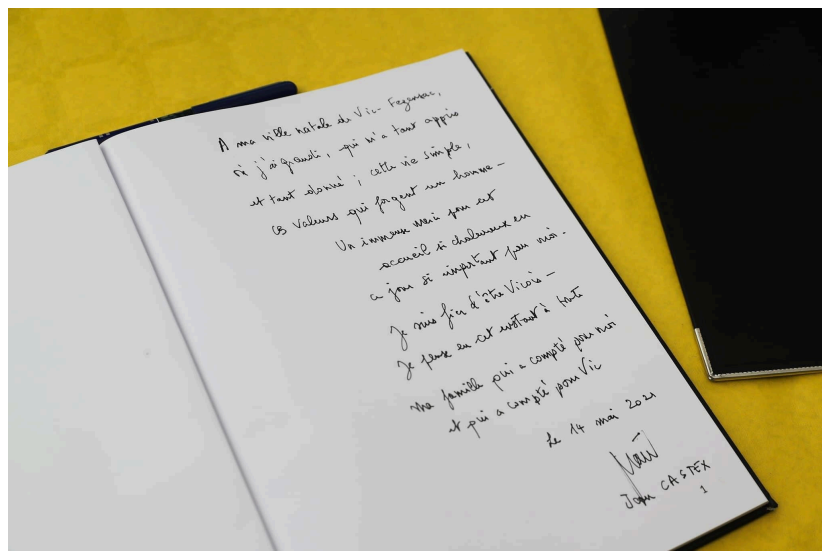 A ma ville natale de Vic-Fezensac,
où j'ai grandi, qui m'a tant appris
et tant donné ; cette vie simple,
ces valeurs qui forgent un homme -
Un immense merci pour cet
accueil si chaleureux en
ce jour si important pour moi.
Je suis fier d'être Vicois -
Je pense en cet instant à toute
ma famille qui a compté pour moi
et qui a compté pour Vic
Le 14 mai 2021
Jean CASTEX
1